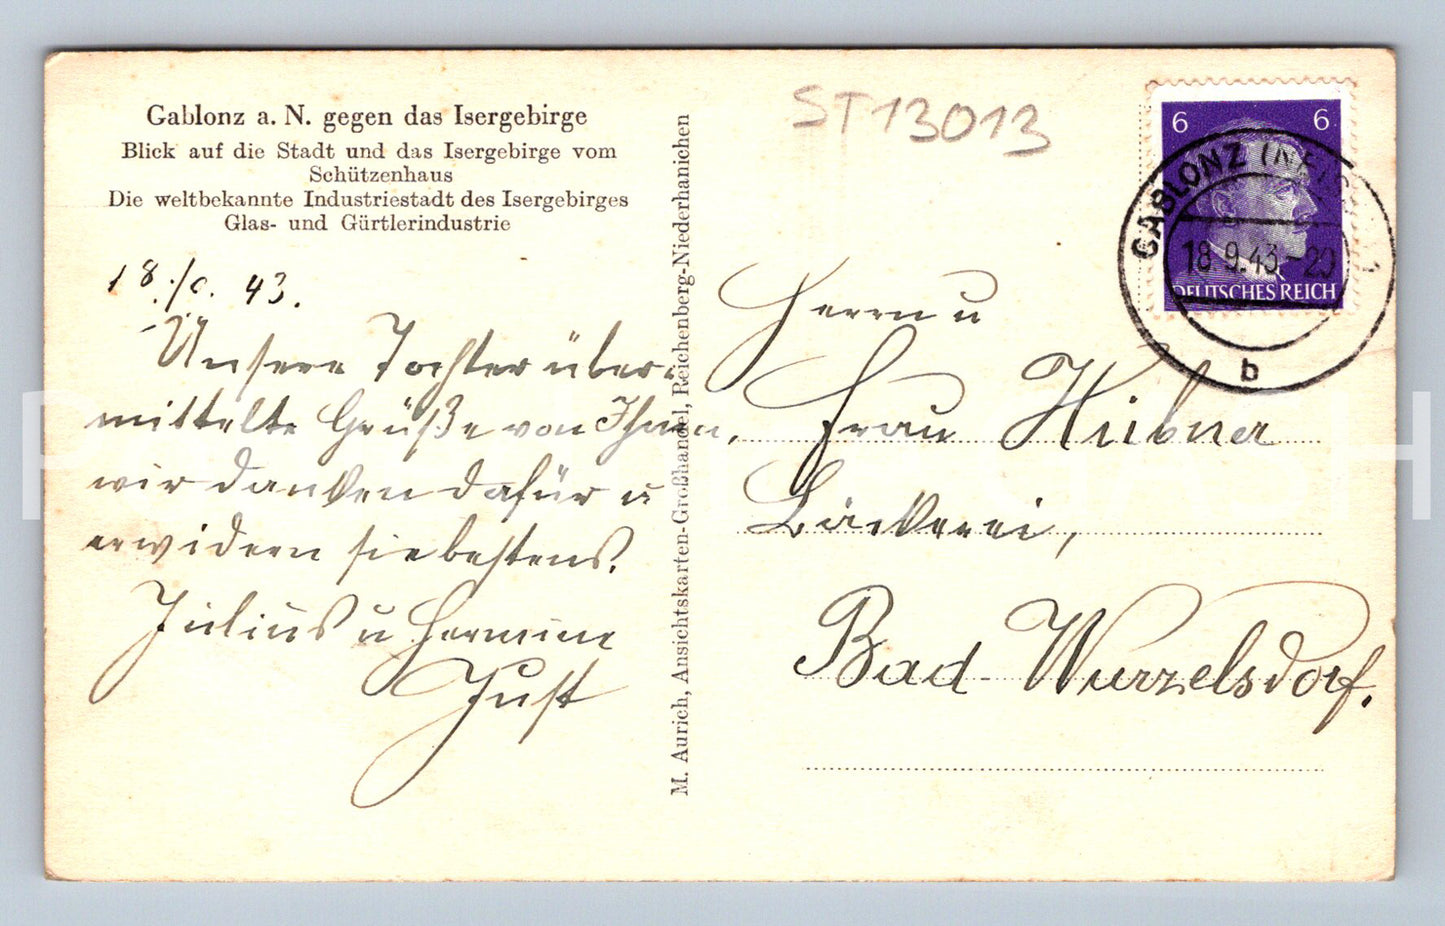 Gablonz a. N. gegen das Isergebirge
Blick auf die Stadt und das Isergebirge vom
Schützenhaus
Die weltbekannte Industriestadt des Isergebirges
Glas- und Gürtlerindustrie
18./9. 43.
Unsere Tochter über-
mittelte Grüße von Ihnen,
wir danken dafür u
erwidern sie bestens.
Julius u Hermine
Just
M. Aurich, Ansichtskarten-Großhandel, Reichenberg-Niederhanichen
ST13013
6 6
DEUTSCHES REICH
GABLONZ
18.9.43-20
b
Herrn u
Frau Hübner
Bäckerei,
Bad-Wurzelsdorf.